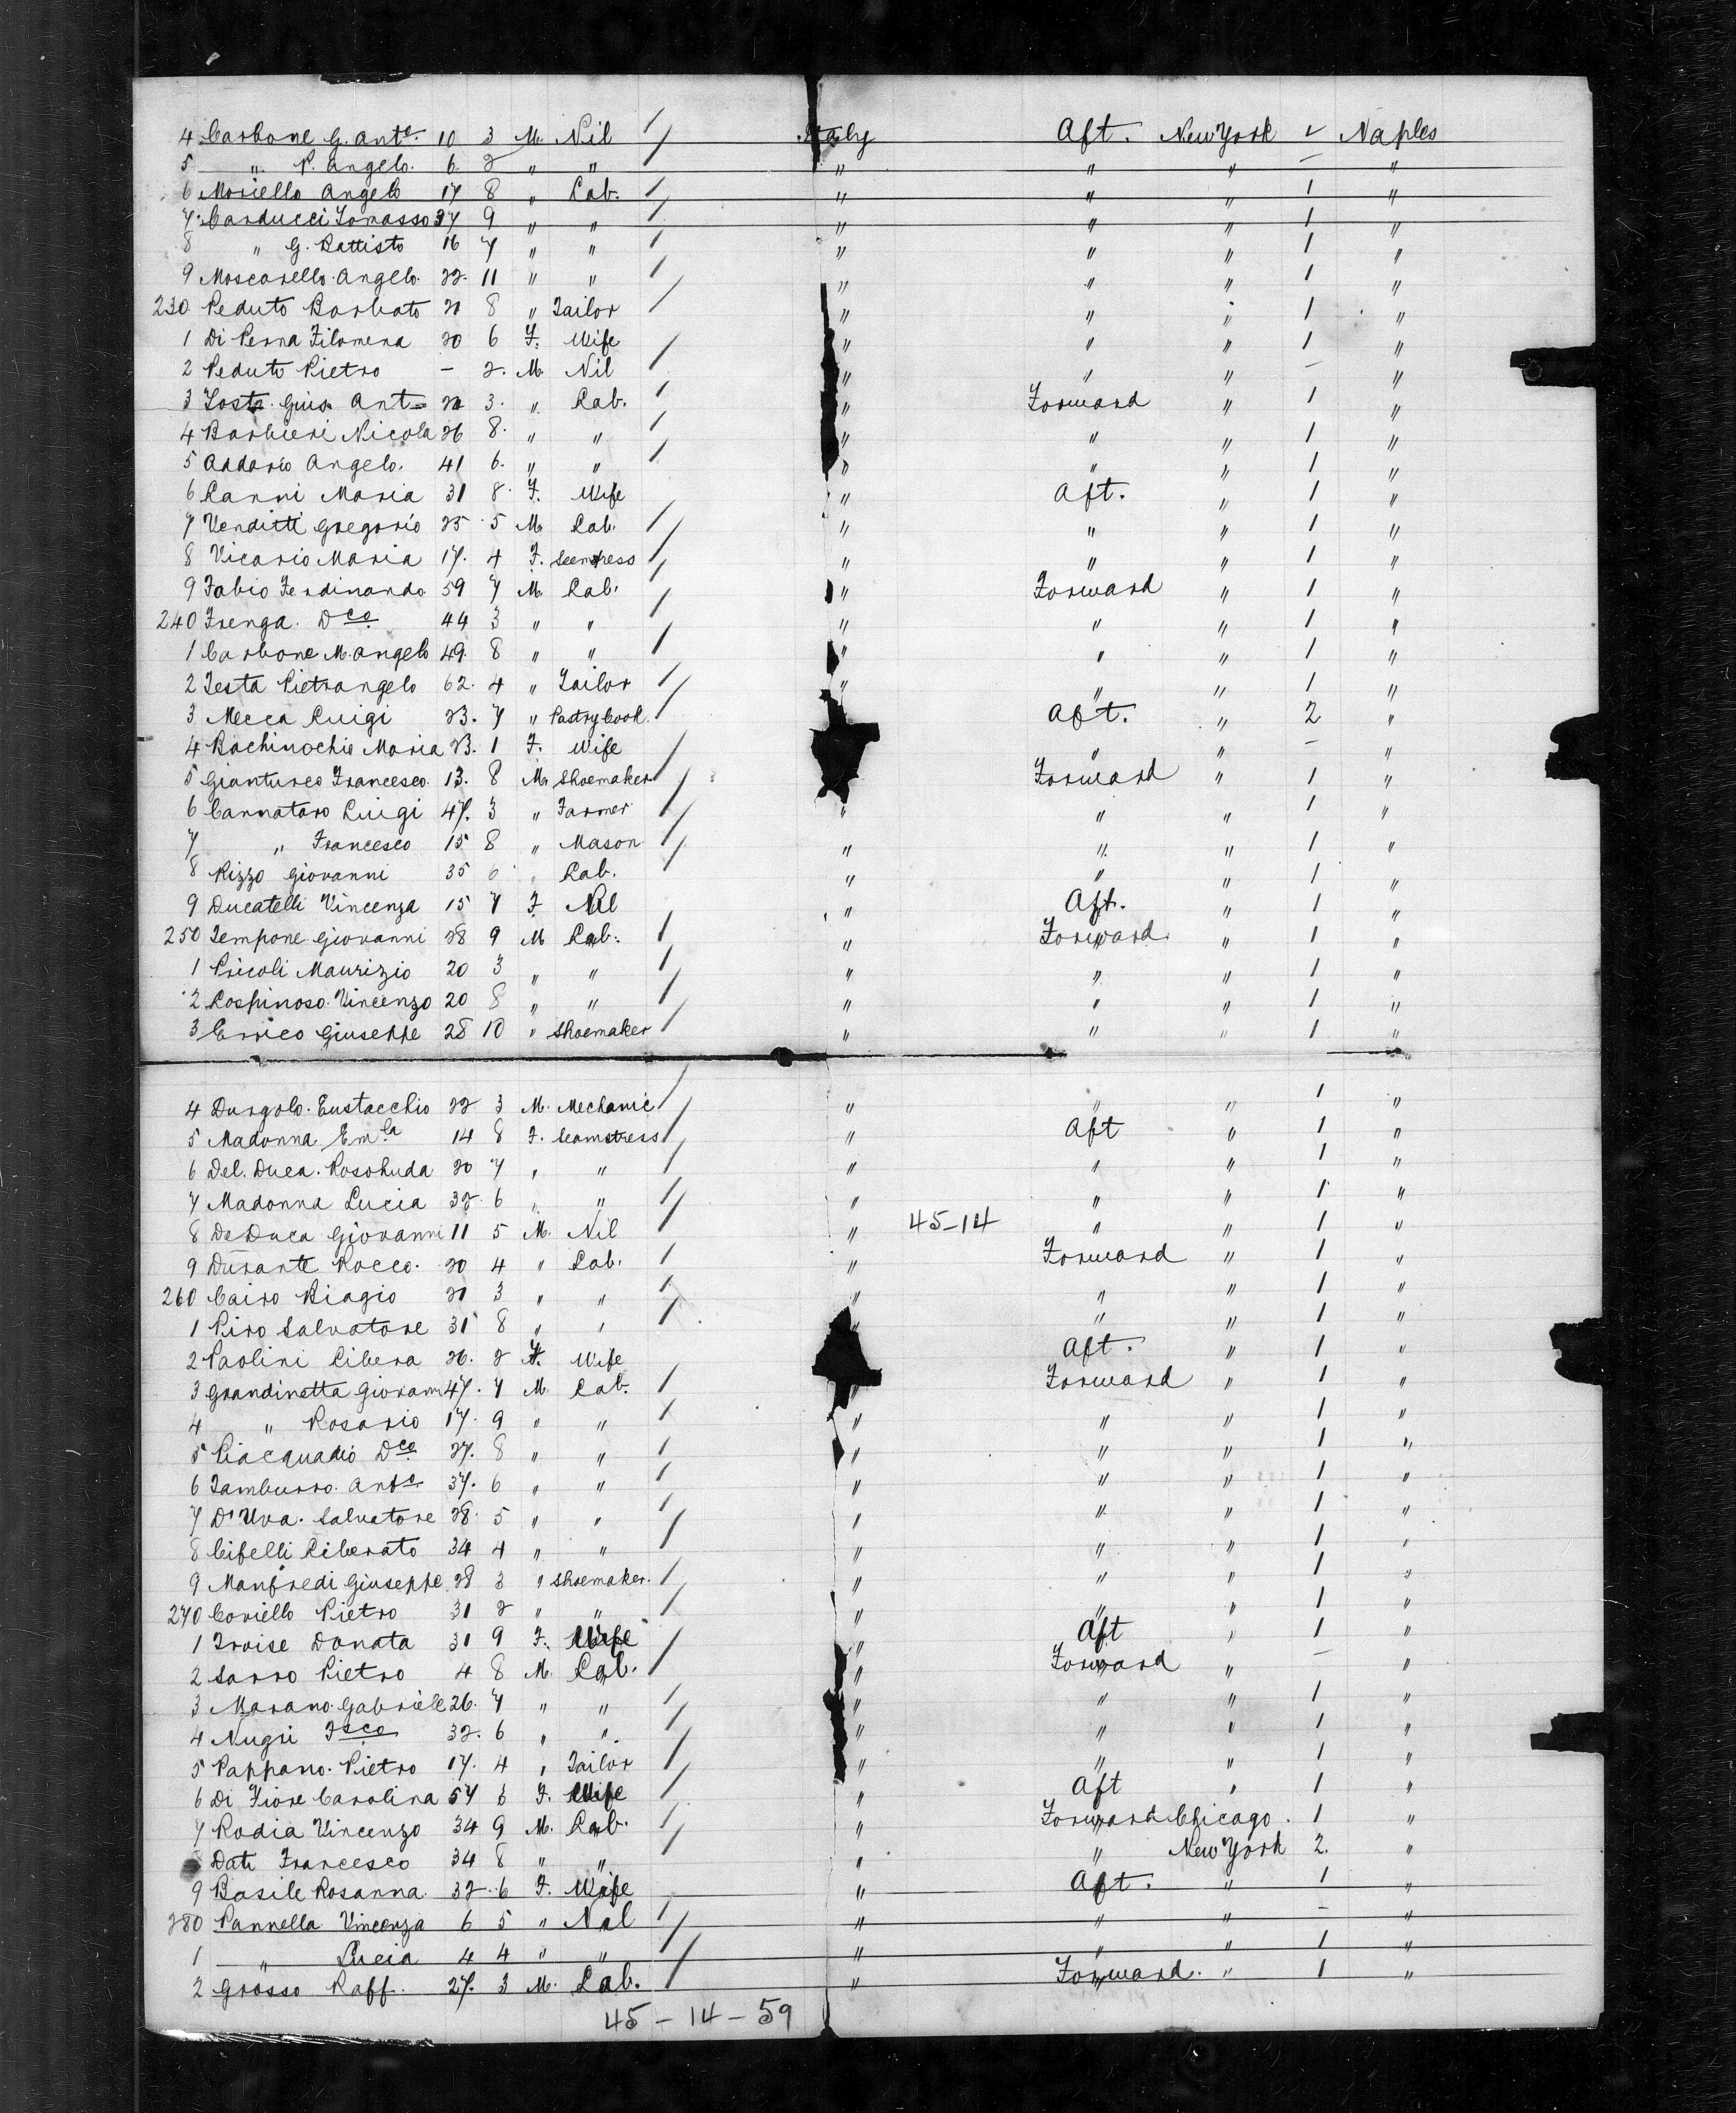 4 Carbone G. Ant.o 10 3 M. Nil / Italy Aft. New York ✓ Naples
5 " P. Angelo. 6 2 " " / " " " — "
6 Moriello Angelo 17 8 " Lab. / " " " 1 "
7 Carducci Tomasso 37 9 " " / " " " 1 "
8 " G. Battisto 16 7 " " / " " " 1 "
9 Moscarello Angelo. 22. 11 " " / " " " 1 "
230 Peduto Barbato 21 8 " Tailor / " " " 1 "
1 Di Perna Filomena 20 6 F. Wife " " " 1 "
2 Peduto Pietro - 2. M. Nil / " " " — "
3 Gius. Ant= 3. " Lab. / " Forward " 1 "
4 Barbieri Nicola 26 8. " " / " " " 1 "
5 Addario Angelo. 41 6. " " / " " " 1 "
6 Lanni Maria 31 8. F. Wife " Aft. " 1 "
7 Venditti Gregorio 25 5 M. Lab. / " " " 1 "
8 Vicario Maria 17. 4 F. Seemstress / " " " 1 "
9 Fabio Ferdinando 59 7 M. Lab. / " Forward " 1 "
240 Frenga. Dco 44 3 " " / " " " 1 "
1 Carbone M. Angelo 49. 8 " " / " " " 1 "
2 Testa Pietrangelo 62. 4 " Tailor / " " " 1 "
3 Mecca Luigi 23. 7 " Pastry Cook. / Aft. " 2 "
4 Maria 23. 1 F. Wife / " " — "
5 Gianturco Francesco. 13. 8 M. Shoemaker / Forward " 1 "
6 Cannataro Luigi 47. 3 " Farmer / " " " 1 "
7 " Francesco 15 8 " Mason / " " " 1 "
8 Rizzo Giovanni 35 6 " Lab. " " " 1 "
9 Ducatelli Vincenza 15 7 F. Nil " Aft. " 1 "
250 Tempone Giovanni 28 9 M Lab. / " Forward " 1 "
1 Pricoli Maurizio 20 3 " " / " " " 1 "
2 Lospinoso. Vincenzo 20 8 " " / " " " 1 "
3 Errico Giuseppe 28 10 " Shoemaker / " " " 1 "
4 Durgolo. Eustacchio 22 3 M. Mechanic / " " " 1 "
5 Madonna Em.la 14 8 F. Seamstress / " Aft " 1 "
6 Del. Duca. 20 7 " " / " " " 1 "
7 Madonna Lucia 32. 6 " " / " " " 1 "
8 De Duca Giovanni 11 5 M. Nil / " 45-14 " " 1 "
9 Durante Rocco. 20 4 " Lab. / " Forward " 1 "
260 Cairo Biagio 21 3 " " / " " " 1 "
1 Piro Salvatore 31 8 " " / " " " 1 "
2 Paolini Libera 26. 2 F. Wife Aft. " 1 "
3 Grandinetta Giovanni 47. 7 M. Lab. / " Forward " 1 "
4 " Rosario 17. 9 " " / " " " 1 "
5 Piacquadio Dco 27. 8 " " / " " " 1 "
6 Tamburro. Anto 37. 6 " " / " " " 1 "
7 D'Uva. Salvatore 28. 5 " " / " " " 1 "
8 Cifelli Liberato 34 4 " " / " " " 1 "
9 Manfredi Giuseppe 28 3 " Shoemaker. / " " " 1 "
270 Coviello Pietro 31 2 " " / " " " 1 "
1 Troise Donata 31 9 F. Wife " Aft " 1 "
2 Sarro Pietro 4 8 M. Lab. / " Forward " — "
3 Marano. Gabriele 26. 7 " " / " " " 1 "
4 Nugri Fsco 32. 6 " " / " " " 1 "
5 Pappano. Pietro 17. 4 " Tailor / " " " 1 "
6 Di Fiore Carolina 57 F. Wife / " Aft " 1 "
7 Rodia Vincenzo 34 9 M. Lab. / " Forward Chicago. 1 "
Dati Francesco 34 8 " " / " " New York 2. "
9 Basile Rosanna 32. 6 F. Wife " Aft. " 1 "
280 Pannella Vincenza 6 5 " Nil / " " " — "
1 " Lucia 4 4 " " / " " " 1 "
2 Grosso Raff. 27. 3 M. Lab. / " Forward. " 1 "
45-14-59